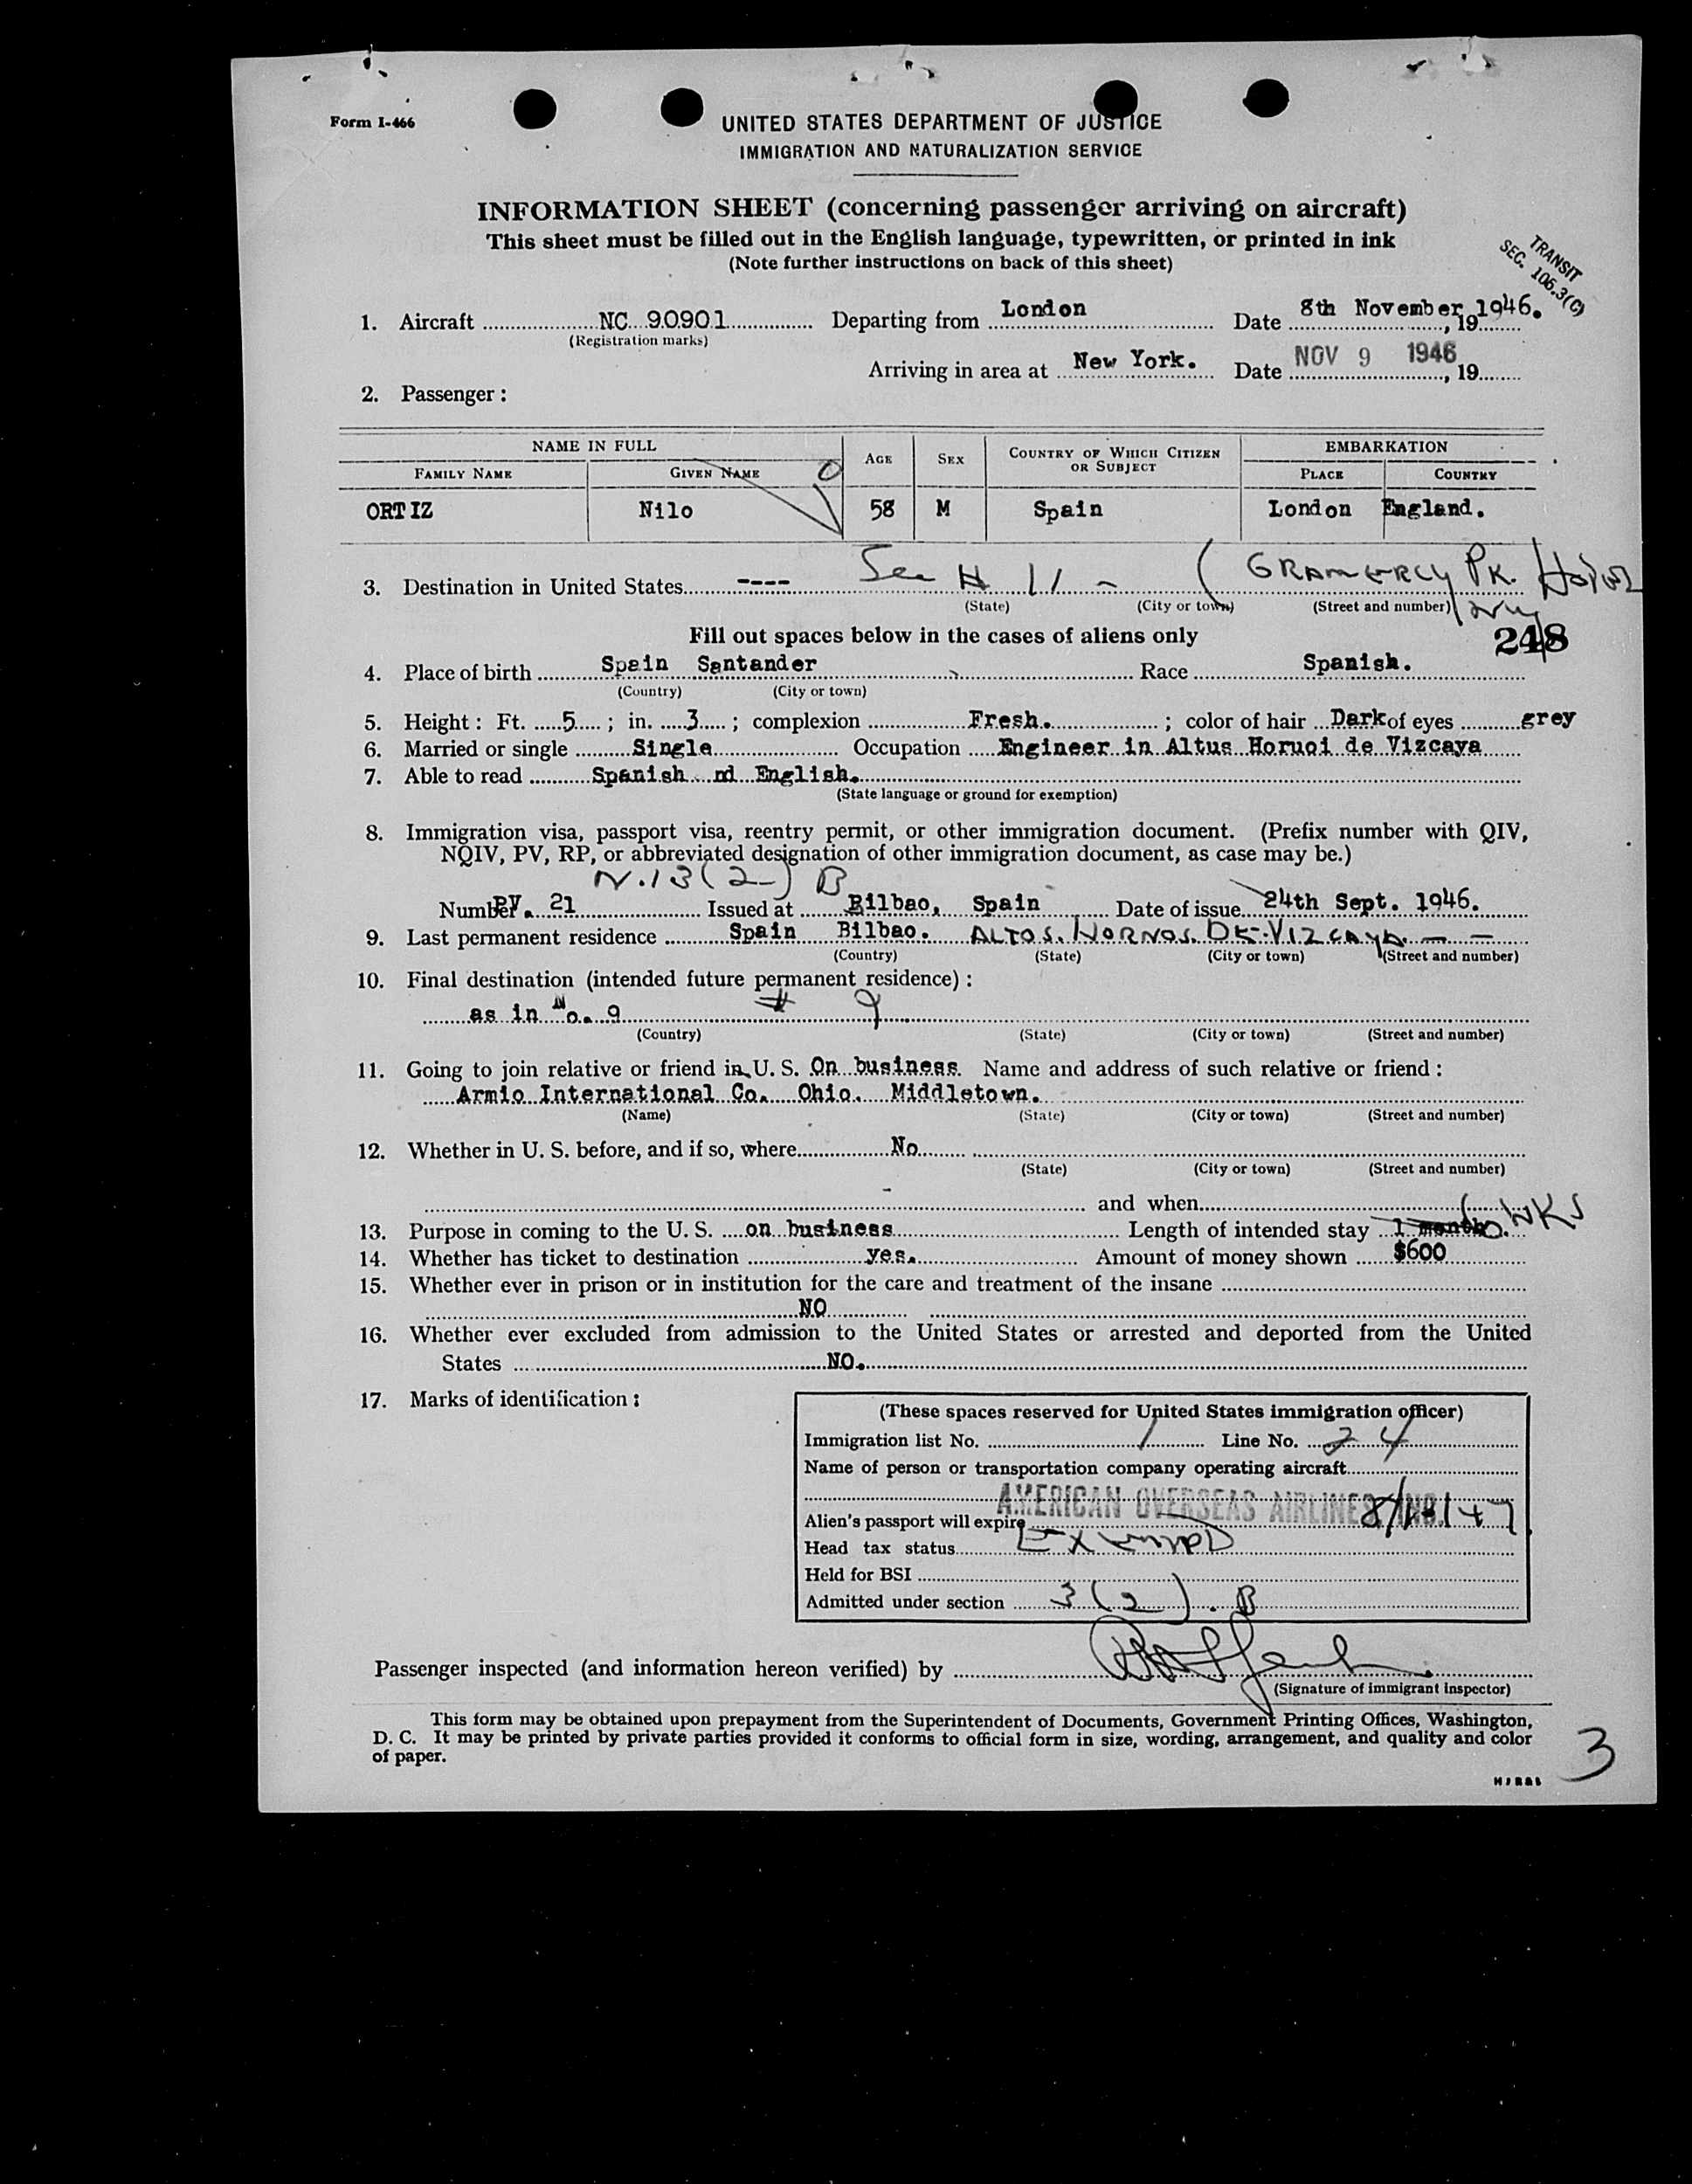 Form I-466
UNITED STATES DEPARTMENT OF JUSTICE
IMMIGRATION AND NATURALIZATION SERVICE
INFORMATION SHEET (concerning passenger arriving on aircraft)
This sheet must be filled out in the English language, typewritten, or printed in ink
(Note further instructions on back of this sheet)
TRANSIT
SEC. 106.3(C)
1. Aircraft NC 90901 Departing from London Date 8th November 1946. , 19
(Registration marks)
Arriving in area at New York. Date NOV 9 1946 , 19
2. Passenger:
NAME IN FULL AGE SEX COUNTRY OF WHICH CITIZEN OR SUBJECT EMBARKATION
FAMILY NAME GIVEN NAME PLACE COUNTRY
ORTIZ Nilo 58 M Spain London England.
3. Destination in United States ---- See # 11 - ( GRAMERCY PK. Hotel
(State) (City or town) (Street and number) NY
Fill out spaces below in the cases of aliens only
248
4. Place of birth Spain Santander Race Spanish.
(Country) (City or town)
5. Height: Ft. 5; in. 3; complexion Fresh.; color of hair Dark of eyes grey
6. Married or single Single Occupation Engineer in Altus Horuoi de Vizcaya
7. Able to read Spanish nd English.
(State language or ground for exemption)
8. Immigration visa, passport visa, reentry permit, or other immigration document. (Prefix number with QIV,
NQIV, PV, RP, or abbreviated designation of other immigration document, as case may be.)
N.13(2) B
Number PV. 21 Issued at Bilbao, Spain Date of issue 24th Sept. 1946.
9. Last permanent residence Spain Bilbao. ALTOS. HORNOS. DE-VIZCAYA - -
(Country) (State) (City or town) (Street and number)
10. Final destination (intended future permanent residence):
as in No. 9 # 9
(Country) (State) (City or town) (Street and number)
11. Going to join relative or friend in U. S. On business. Name and address of such relative or friend:
Armio International Co. Ohio. Middletown.
(Name) (State) (City or town) (Street and number)
12. Whether in U. S. before, and if so, where No
(State) (City or town) (Street and number)
and when
13. Purpose in coming to the U. S. on business Length of intended stay 1 months 6 WKS
14. Whether has ticket to destination yes. Amount of money shown $600
15. Whether ever in prison or in institution for the care and treatment of the insane
NO
16. Whether ever excluded from admission to the United States or arrested and deported from the United
States NO.
17. Marks of identification:
(These spaces reserved for United States immigration officer)
Immigration list No. 1 Line No. 24
Name of person or transportation company operating aircraft
AMERICAN OVERSEAS AIRLINES INC.
Alien's passport will expire
Head tax status Exempt
Held for BSI
Admitted under section 3(2). B
Passenger inspected (and information hereon verified) by
(Signature of immigrant inspector)
This form may be obtained upon prepayment from the Superintendent of Documents, Government Printing Offices, Washington,
D. C. It may be printed by private parties provided it conforms to official form in size, wording, arrangement, and quality and color
of paper.
3